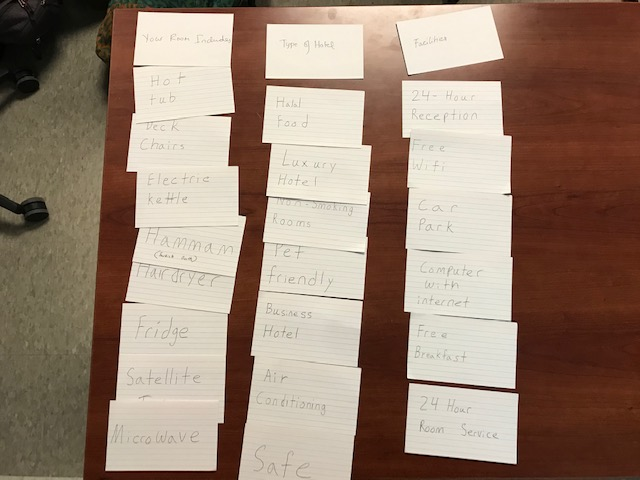 Your Room Includes
Hot
tub
Deck
Chairs
Electric
Kettle
Hammam
Hairdryer
Fridge
Satellite
Microwave
Type of Hotel
Halal
Food
Luxury
Hotel
Non-Smoking
Rooms
Pet
friendly
Business
Hotel
Air
Conditioning
Safe
Facilities
24-Hour
Reception
Free
Wifi
Car
Park
Computer
with
internet
Free
Breakfast
24 Hour
Room Service